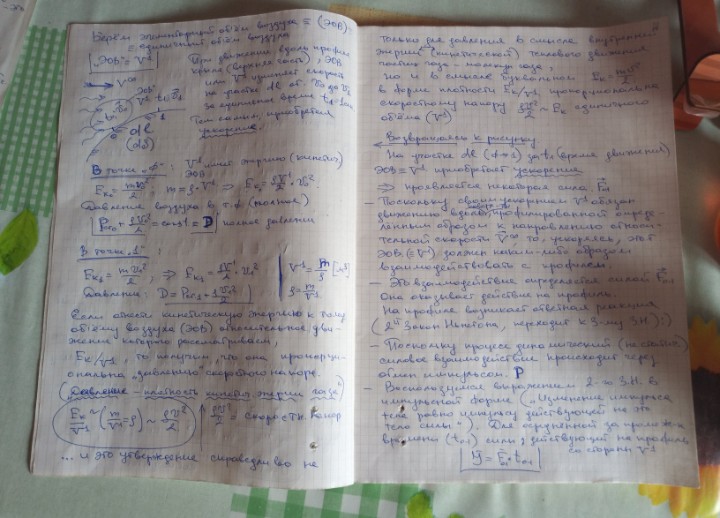 Берём элементарный объём воздуха ≡ (ЭОВ);
≡ единичный объём воздуха
"ЭОВ" ≡ V¹
При движении вдоль профиля
крыла (верхняя часть), ЭОВ
или V¹ изменяет скорость
на участке dl от V₀ до V₁
за единичное время
Тем самым, приобретая
ускорение.
V∞
dl
(dS)
В точке "0": V¹ имеет энергию (кинетич)
ЭОВ
E_k₀ = mV₀²/2; m = ρ·V¹ ⇒ E_k₀ = ρV¹/2 · V₀²
Давление воздуха в т. 0 (полное)
P_ст₀ + ρV₀²/2 = const = D полное давление
В точке "1":
E_k₁ = mV₁²/2; ⇒ E_k₁ = ρV¹/2 · V₁²
V¹ = m/ρ [м³]
ρ = m/V¹
Давление: D = P_ст₁ + ρV₁²/2
Если отнести кинетическую энергию к тому
объёму воздуха (ЭОВ) относительное дви-
жение которого рассматриваем,
E_k/V¹, то получим, что она пропорци-
ональна "давлению" скоростного напора.
("Давление - плотность энергии газа")
E_k/V¹ ~ (m/V¹ = ρ) ~ ρV²/2
ρV²/2 = скоростн. напор
... и это утверждение справедливо не
только для давления в смысле внутренней
энергии (кинетической) теплового движения
частиц газа - молекул газа,
Но и в смысле буквальном E_k = mV²/2
в форме плотности E_k/V¹, пропорциональна
скоростному напору ρV²/2 ~ E_k единичного
объёма (V¹)
Возвращаясь к рисунку
На участке dl (0→1) за t₀₁ (время движения)
ЭОВ ≡ V¹ приобретает ускорение
⇒ проявляется некоторая сила F₀₁
- Поскольку своим ускорением V¹ обязан
движению вдоль профилированной опреде-
лённым образом к направлению относи-
тельной скорости V∞, то, ускоряясь, этот
ЭОВ (≡ V¹) должен каким-либо образом
взаимодействовать с профилем.
- Это взаимодействие определяется силой F₀₁
Она оказывает действие на профиль.
На профиле возникает ответная реакция
(2ой Закон Ньютона, переходит к 3-му З.Н.) :)
- Поскольку процесс динамический (не статич.)
силовое взаимодействие происходит через
обмен импульсом. P
- Воспользуемся выражением 2-го З.Н. в
импульсной форме ("Изменение импульса
тела равно импульсу действующей на это
тело силы"). Для осреднённой за промеж-к
времени (t₀₁) силы, действующей на профиль
со стороны V¹
= F₀₁·t₀₁